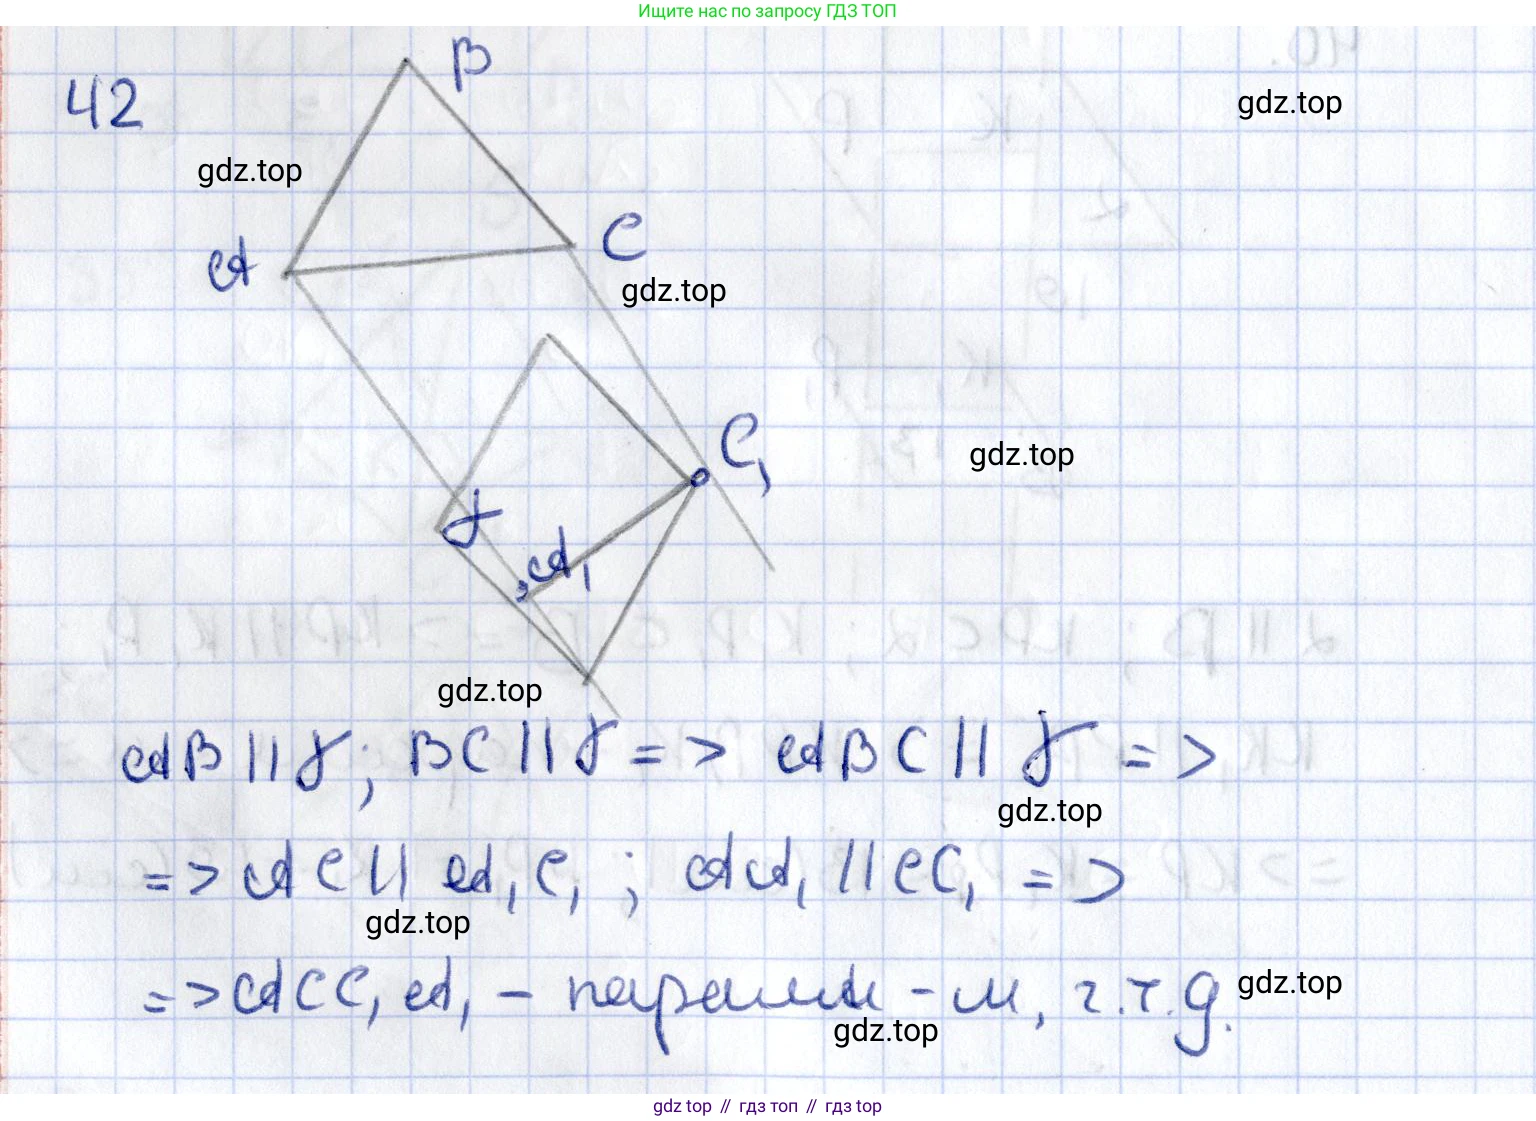 Ищите нас по запросу ГДЗ ТОП
42
B
gdz.top
gdz.top
A
C
gdz.top
C₁
gdz.top
γ
A₁
gdz.top
AB || γ; BC || γ => ABC || γ =>
gdz.top
=> AC || A₁C₁; AA₁ || CC₁ =>
gdz.top
=> ACC₁A₁ - паралл - м, ч.т.д.
gdz.top
gdz.top
gdz top // гдз топ // гдз top